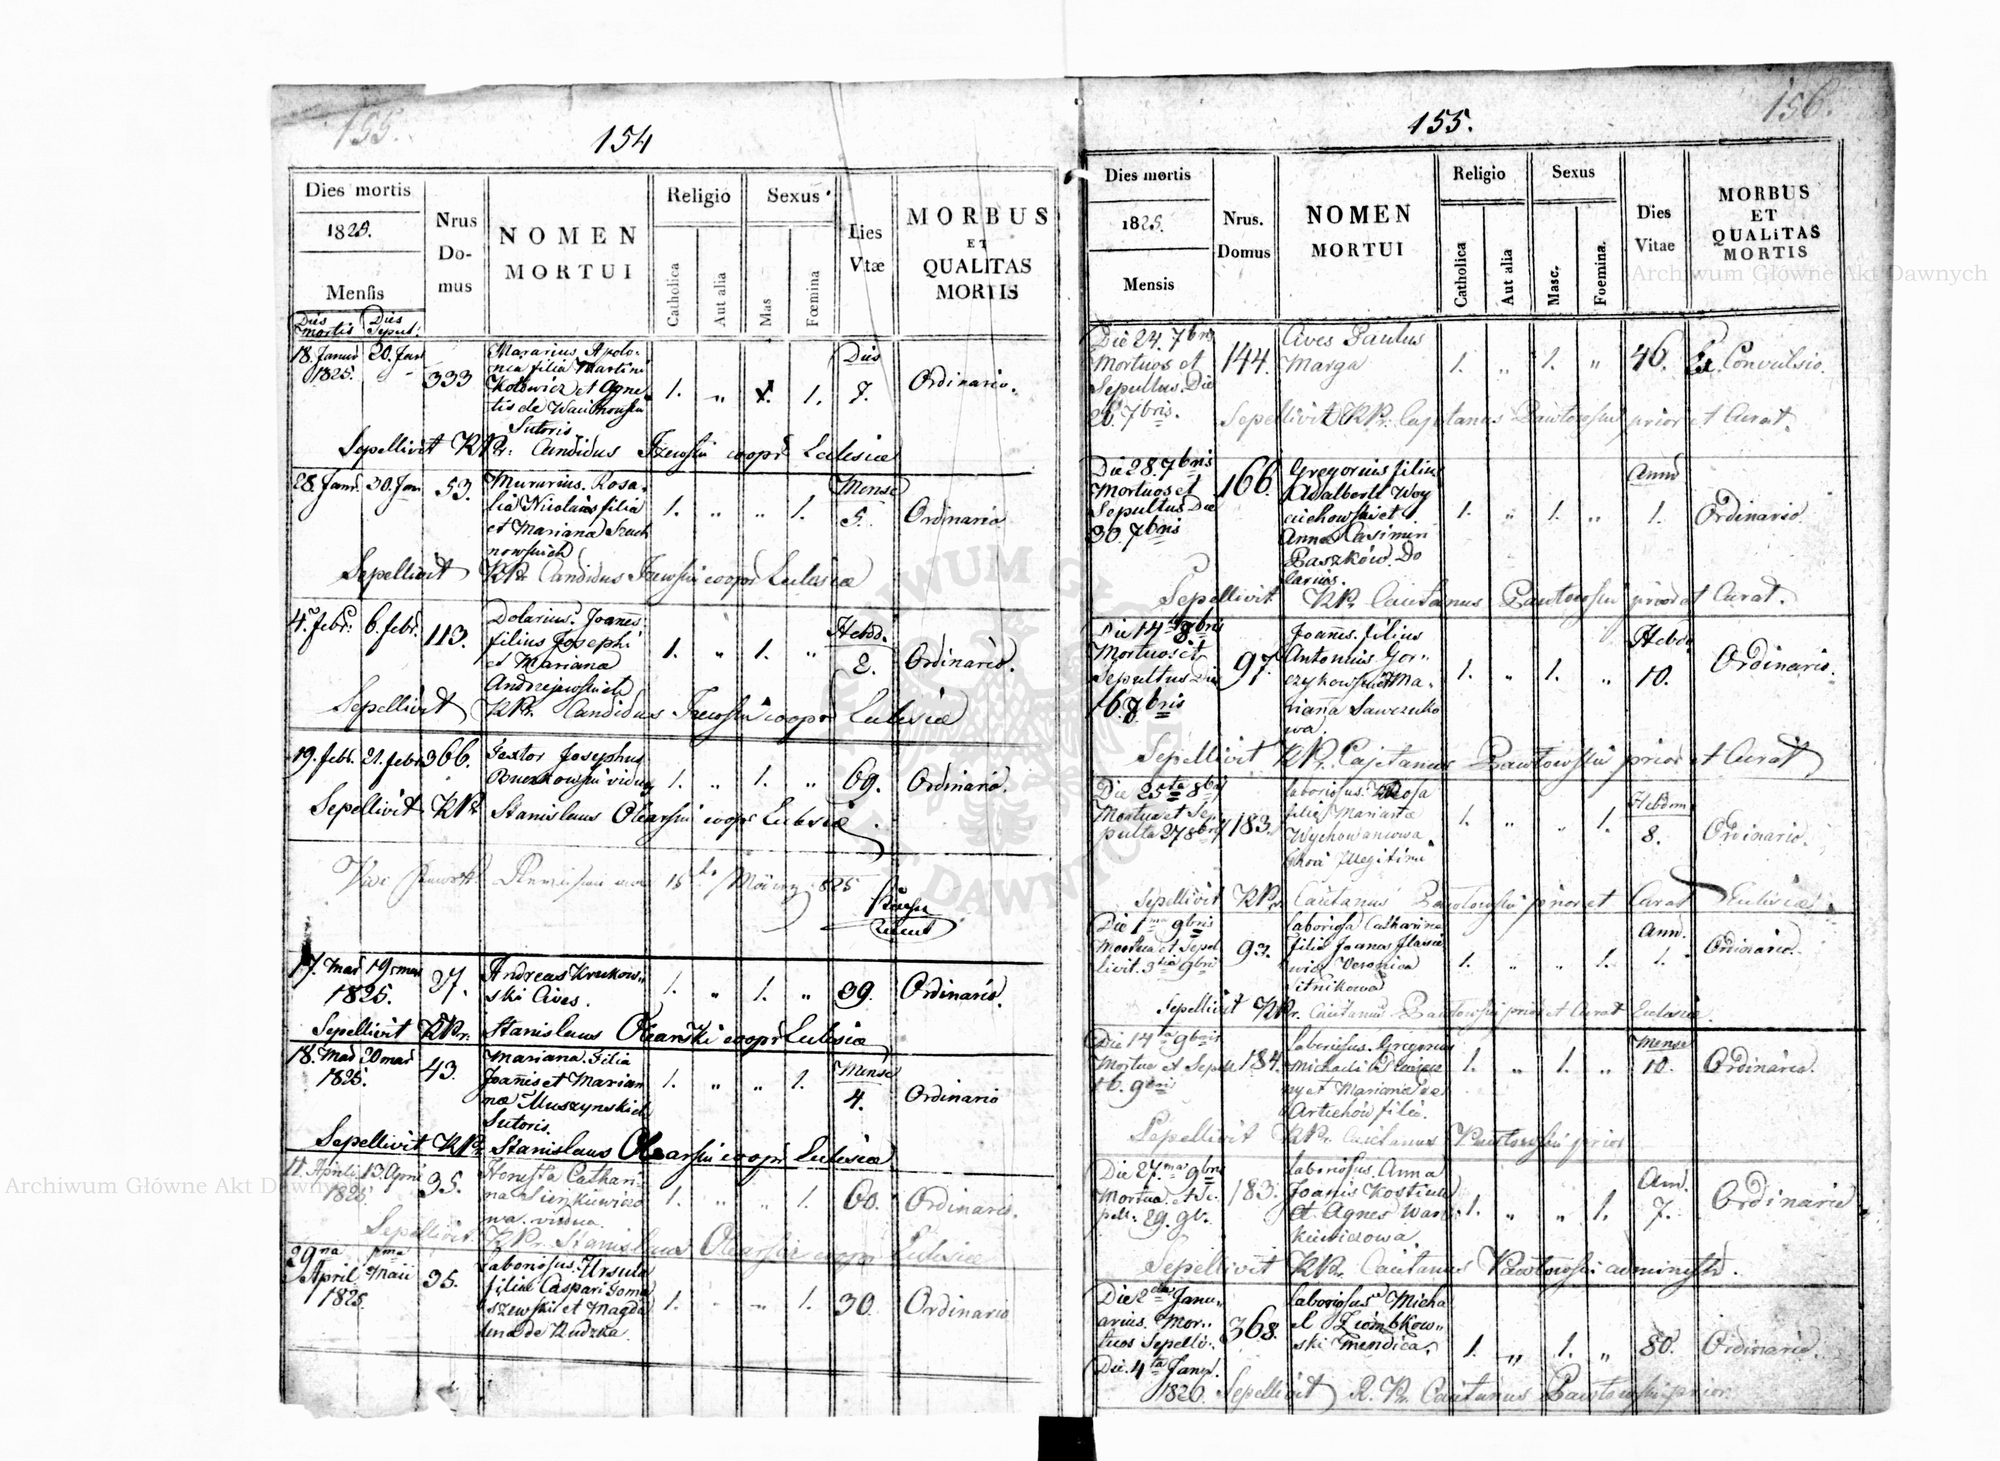 155.
154
Dies mortis
1825.
Mensis
Dies mortis
Dies Sepult.
Nrus Domus
NOMEN MORTUI
Religio
Catholica
Aut alia
Sexus
Mas
Fœmina
Dies Vitæ
MORBUS
ET
QUALITAS
MORTIS
18. Januar 20. Jan
1825.
333
Apolo
nia filia Martini
Kotowicz et Agne
tis de
Sutoris
1. „ 1.
Dies
7.
Ordinario.
Sepellivit KPr. Candidus coopr Eclesiæ
28. Janr. 30. Jan.
53.
Murarius. Rosa
lia Nicolai filia
et Mariana
1. „ „ 1.
Mense
5.
Ordinario
Sepellivit KPr. Candidus coopr Eclesiæ
4. febr. 6. febr.
113.
Dolarius. Joannes
filius Josephi
et Mariana
Andrzejewskich
1. „ 1. „
Hebd.
2.
Ordinario.
Sepellivit KPr. Candidus coopr Eclesiæ
19. febr. 21. febr
366.
Textor Josephus
1. „ 1. „
69.
Ordinario.
Sepellivit KPr. Stanislaus coopr Eclesiæ
825
17. Mar 19. mar
1825.
37.
Andreas
ski Cives.
1. „ 1. „
39.
Ordinario.
Sepellivit KPr. Stanislaus coopr Eclesiæ
18. Mar 20 mar
1825.
43.
Mariana. Filia
Joannis et Marian
næ Muszynskich
Sutoris.
1. „ „ 1.
Mense
4.
Ordinario
Sepellivit KPr. Stanislaus coopr Eclesiæ
11. Aprili 13. April
1825
35.
Honesta Cathari
na Sienkiewiczo
wa. vidua.
1. „ „ 1.
60.
Ordinario.
Sepellivit KPr. Stanislaus coopr Eclesiæ
29na pma
April Maii
1825.
35.
Laboriosus. Ursula
filia Caspari Toma
szewski et Magda
lena de Rudzka.
1. „ „ 1.
30.
Ordinario
156.
155.
Dies mortis
1825.
Mensis
Nrus. Domus
NOMEN
MORTUI
Religio
Catholica
Aut alia
Sexus
Masc.
Foemina.
Dies
Vitae
MORBUS
ET
QUALiTAS
MORTIS
Die 24. 7bris
Mortuos et
Sepultus. Die
26. 7bris.
144.
Cives Paulus
Marga
1. „ 1. „
46.
Ex Convulsio.
Sepellivit KPr. Cajetanus Pawłowski prior et Curat.
Die 28. 7bris
Mortuos et
Sepultus Die
30. 7bris
166.
Gregorius filius
Adalberti Woy
ciechowski et
Anna Casimiri
Paszków. Do
larius.
1. „ 1. „
Anno
1.
Ordinario.
Sepellivit KPr. Caietanus Pawłowski prior et Curat.
Die 14ta 8bris
Mortuos et
Sepultus Die
16. 8bris
97.
Joannes. filius
Antonius. Gor
czykowski et Ma
rianna Sawczuko
wa.
1. „ 1. „
Hebd.
10.
Ordinario.
Sepellivit KPr. Cajetanus Pawłowski prior et Curat
Die 25ta 8bris
Mortua et Se
pulta 27 8bris
183.
Laboriosus. Rosa
filia Marianæ
Illegitimi
1. „ „ 1.
Hebdom
8.
Ordinario.
Sepellivit KPr. Caietanus Pawłowski prior et Curat Eclisiæ.
Die 1ma 9bris
Mortua et Sepel
livit. 3tia 9bris
93.
Laboriosa Catharina
Filia Joanes
Veronica
Sitnikowa
1. „ „ 1.
Ann.
1.
Ordinario.
Sepellivit KPr. Caietanus Pawłowski prior et Curat Eclesiæ.
Die 14ta 9bris
Mortuo et Sepell
16. 9bris
184.
Laboriosus. Gregorius
Michaeli
ny et Mariana de
Artichów filio.
1. „ 1. „
Mense
10.
Ordinario.
Sepellivit KPr. Caietanus Pawłowski prior
Die 27.ma 9bris
Mortua. et Se
pell. 29. 9b.
183.
Laboriosus. Anna
Joanis Kostiuk
et Agnes War
kiewiczowa.
1. „ „ 1.
Ann.
7.
Ordinario
Sepellivit KPr. Caietanus Pawłowski administr.
Die 2da Janu
arius. Mor
tuos Sepelliv.
Die. 4ta Janr.
1826
368.
Laboriosus Micha
el Ziombkow
ski mendica.
1. „ 1. „
80.
Ordinario.
Sepellivit R. Pr. Caietanus Pawłowski prior.
Archiwum Główne Akt Dawnych
Archiwum Główne Akt Dawnych
ARCHIWUM GŁÓWNE AKT DAWNYCH